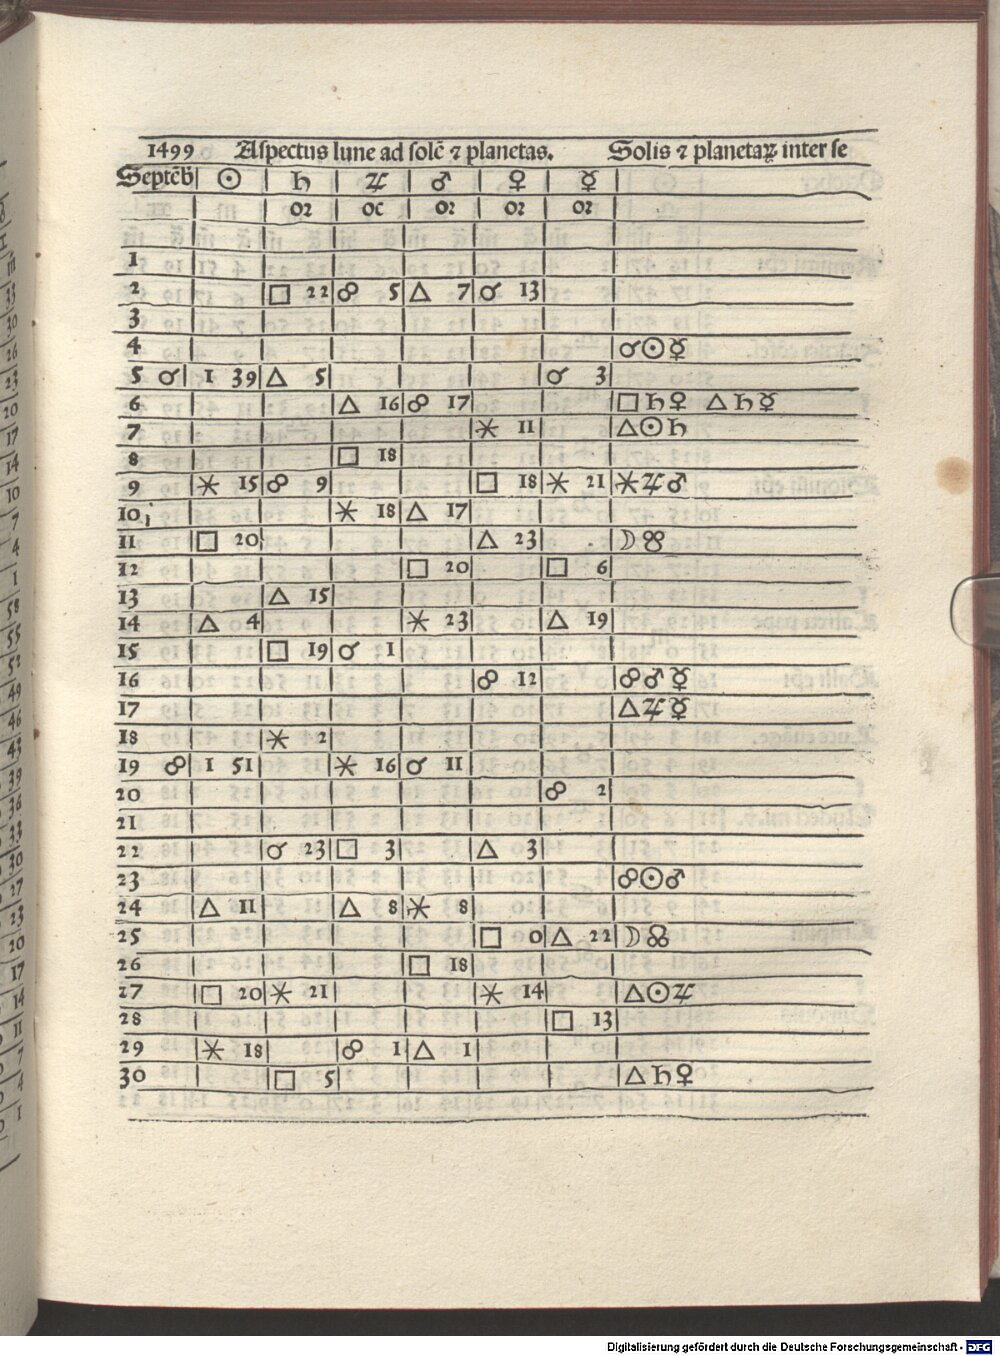 1499 Aspectus lune ad solē ⁊ planetas. Solis ⁊ planetaꝝ inter se
Septēb ☉ ♄ ♃ ♂ ♀ ☿
oꝛ oc oꝛ oꝛ oꝛ
1
2 □ 22 ☍ 5 △ 7 ☌ 13
3
4 ☌☉☿
5 ☌ 1 39 △ 5 ☌ 3
6 △ 16 ☍ 17 □♄♀ △♄☿
7 ⚹ 11 △☉♄
8 □ 18
9 ⚹ 15 ☍ 9 □ 18 ⚹ 21 ⚹♃♂
10 ⚹ 18 △ 17
11 □ 20 △ 23 ☽☋
12 □ 20 □ 6
13 △ 15
14 △ 4 ⚹ 23 △ 19
15 □ 19 ☌ 1
16 ☍ 12 ☍♂☿
17 △♃☿
18 ⚹ 2
19 ☍ 1 51 ⚹ 16 ☌ 11
20 ☍ 2
21
22 ☌ 23 □ 3 △ 3
23 ☍☉♂
24 △ 11 △ 8 ⚹ 8
25 □ 0 △ 22 ☽☊
26 □ 18
27 □ 20 ⚹ 21 ⚹ 14 △☉♃
28 □ 13
29 ⚹ 18 ☍ 1 △ 1
30 □ 5 △♄♀
Digitalisierung gefördert durch die Deutsche Forschungsgemeinschaft - DFG